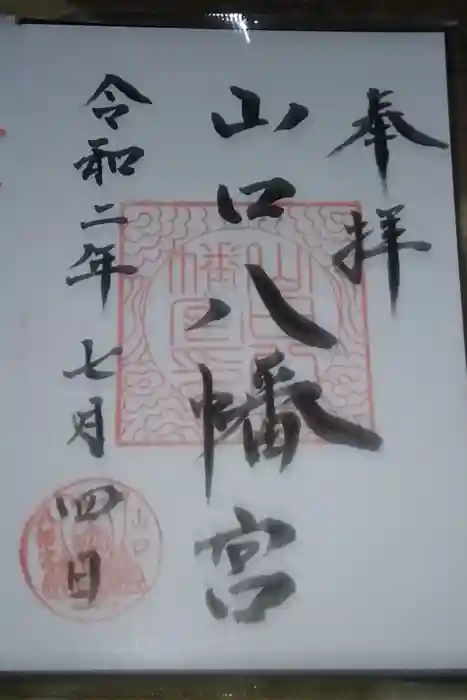 奉拝
山口八幡宮
令和二年七月四日